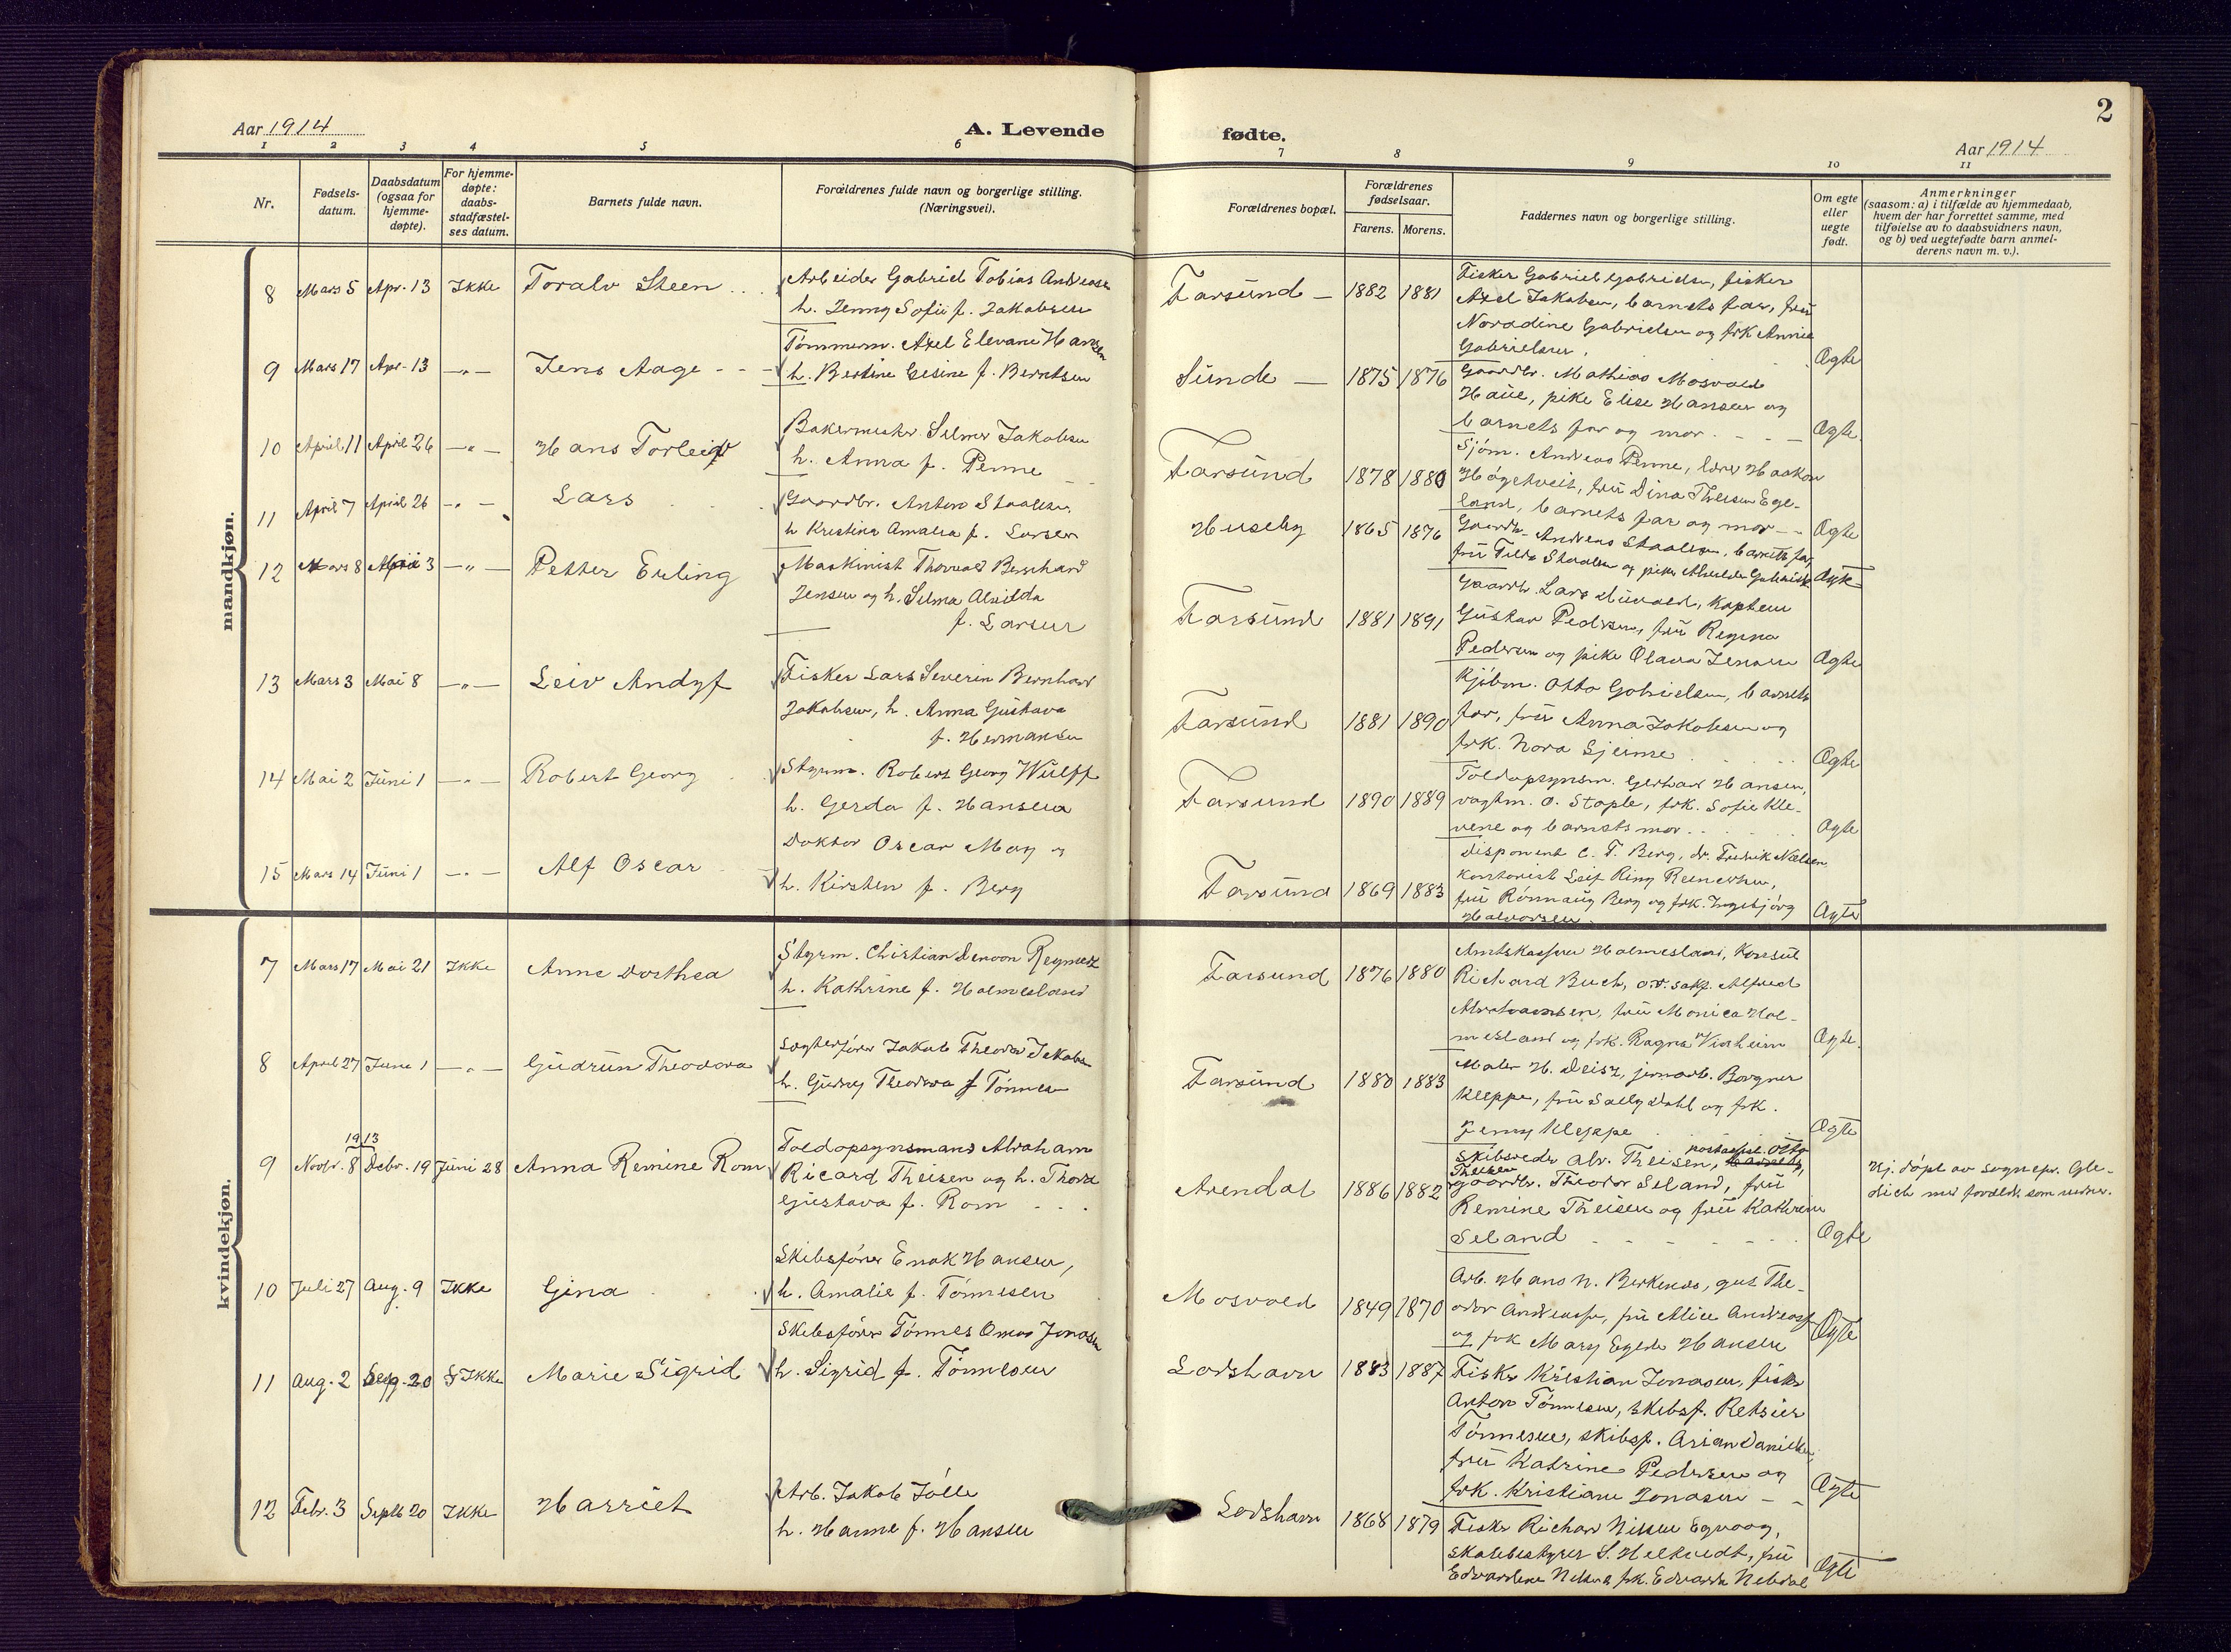 2
Aar 1914
A. Levende
fødte.
Aar 1914
1 2 3 4 5 6 7 8 9 10 11
Nr.
Fødsels-
datum.
Daabsdatum
(ogsaa for
hjemme-
døpte).
For hjemme-
døpte:
daabs-
stadfæstel-
ses datum.
Barnets fulde navn.
Forældrenes fulde navn og borgerlige stilling.
(Næringsvei).
Forældrenes bopæl.
Forældrenes
fødselsaar.
Farens. Morens.
Faddernes navn og borgerlige stilling.
Om egte
eller
uegte
født.
Anmerkninger
(saasom: a) i tilfælde av hjemmedaab,
hvem der har forrettet samme, med
tilføielse av to daabsvidners navn,
og b) ved uegtefødte barn anmel-
derens navn m. v.).
mandkjøn.
8 Mars 5 Apr. 13 Ikke Toralv Steen
Arbeider Gabriel Tobias Andreasen
h. Jenny Sofie f. Jakobsen
Farsund 1882 1881
Fisker Gabriel Gabrielsen, fisker
Axel Jakobsen, barnets far, frü
Noradine Gabrielsen og frk Annie
Gabrielsen. Ægte
9 Mars 17 Apr. 13 -"- Jens Aage
Tømmerm. Axel Elevane Hansen
h. Bertine Gesine f. Berntsen
Sünde 1875 1876
Gaardbr. Mathias Mosvold
Haüe, pike Elise Hansen og
barnets far og mor. Ægte.
10 April 11 April 26 -"- Hans Torleif
Bakermester Selmer Jakobsen
h. Anna f. Penne
Farsünd 1878 1880
Sjøm. Andreas Penne, lærer Haakon
Høgetveit, frü Dina Theisen Ege-
land, barnets far og mor Ægte
11 April 7 April 26 -"- Lars
Gaardbr. Anton Staalesen,
h Kristine Amalia f. Larsen
Huseby 1865 1876
Gaardb. Andreas Staalesen, barnets far,
frü Tilda Staalesen og pike
12 Mars 8 April 3 -"- Petter Erling
Maskinist Thorvald Bernhard
Jensen og h. Selma Alvilda
f. Larsen
Farsünd 1881 1891
Gaardb. Lars kaptein
Güstav Pedersen, frü Regina
Pedersen og pike Olava Jensen Ægte
13 Mars 3 Mai 8 -"- Leiv Andyf
Fisker Lars Severin Bernhard
Jakobsen, h. Anna Güstava
f. Hermansen
Farsünd 1881 1890
Kjøbm. Otto Gabrielsen, barnets
far, frü Anna Jakobsen og
frk. Nora Gjerme Ægte
14 Mai 2 Jüni 1 -"- Robert Georg
Styrm. Robert Georg Wülff
h. Gerda f. Hansen
Farsund 1890 1889
Toldopsynsm. Gerhard Hansen,
vagtm. O. Stople, frk. Sofie Kle-
vene og barnets mor. Ægte
15 Mars 14 Jüni 1 -"- Alf Oscar
Doktor Oscar May og
h. Kirsten f. Berg
Farsünd 1869 1883
Disponent C. F. Berg, dr. Fredrik Nielsen,
kontorist Leif Ring Reinertsen,
frü Rønnaug Berg og frk. Ingebjørg
Halvorsen. Ægte
kvindekjøn.
7 Mars 17 Mai 21 Ikke Anne Dorthea
Styrm. Christian Denoon Reymert
h. Kathrine f. Holmesland
Farsund 1876 1880
Amtskasserer Holmesland, konsül
Richard Buch, o.r. sakf. Alfred
Abrahamsen, frü Monica Hol-
mesland og frk. Ragna Vinheim Ægte.
8 April 27 Juni 1 -"- Güdrün Theodora
Jakob Theodor Jakobsen
h. Güdny Theodora f Tønnesen
Farsünd 1880 1883
Maler H. Deisz, jernarb. Borgner
Kleppe, frü Sally Dahl og frk.
Jenny Kleppe Ægte
1913
9 Novbr. 8 Debr. 19 Jüni 28 Anna Remine Rom
Toldopsynsmand Abraham
Ricard Theisen og h. Thora
Güstava f. Rom
Arendal 1886 1882
Skibsreder Alv. Theisen, Otto
Theisen
gaardbr. Theodor Seland, frü
Remine Theisen og frü Kathrine
Seland Ægte
Hj. døpt av sognepr. Gle-
ditch med foreldr. som vidner.
10 Juli 27 Aug. 9 Ikke Gina
Skibsfører Enok Hansen,
h. Amalie f. Tønnesen
Mosvold 1849 1870
Arb. Hans N. Birkenes, gut The-
odor Andreassen, frü Alice Andreassen
og frk Mary Egede Hansen Ægte
11 Aug. 2 Sep. 20 Ikke Marie Sigrid
Skibsfører Tønnes Omar Jonasen
h. Sigrid f. Tønnesen
Lodshavn 1883 1887
Fisker Kristian Jonasen, fisker
Anton Tønnesen, skibsf. Retsius
Tønnesen, skibsf. Arian Danielsen,
frü Katrine Pedersen og
frk. Kristiane Jonasen Ægte
12 Febr. 3 Septb 20 Ikke Harriet
Arb. Jakob Jølle
h. Hanne f. Hansen
Lodshavn 1868 1879
Fisker Richard Nilsen Egvaag,
skolebestyrer S. Helkvedt, frü
Edvardine Nilsen & frk. Edvarda Nebdal Ægte